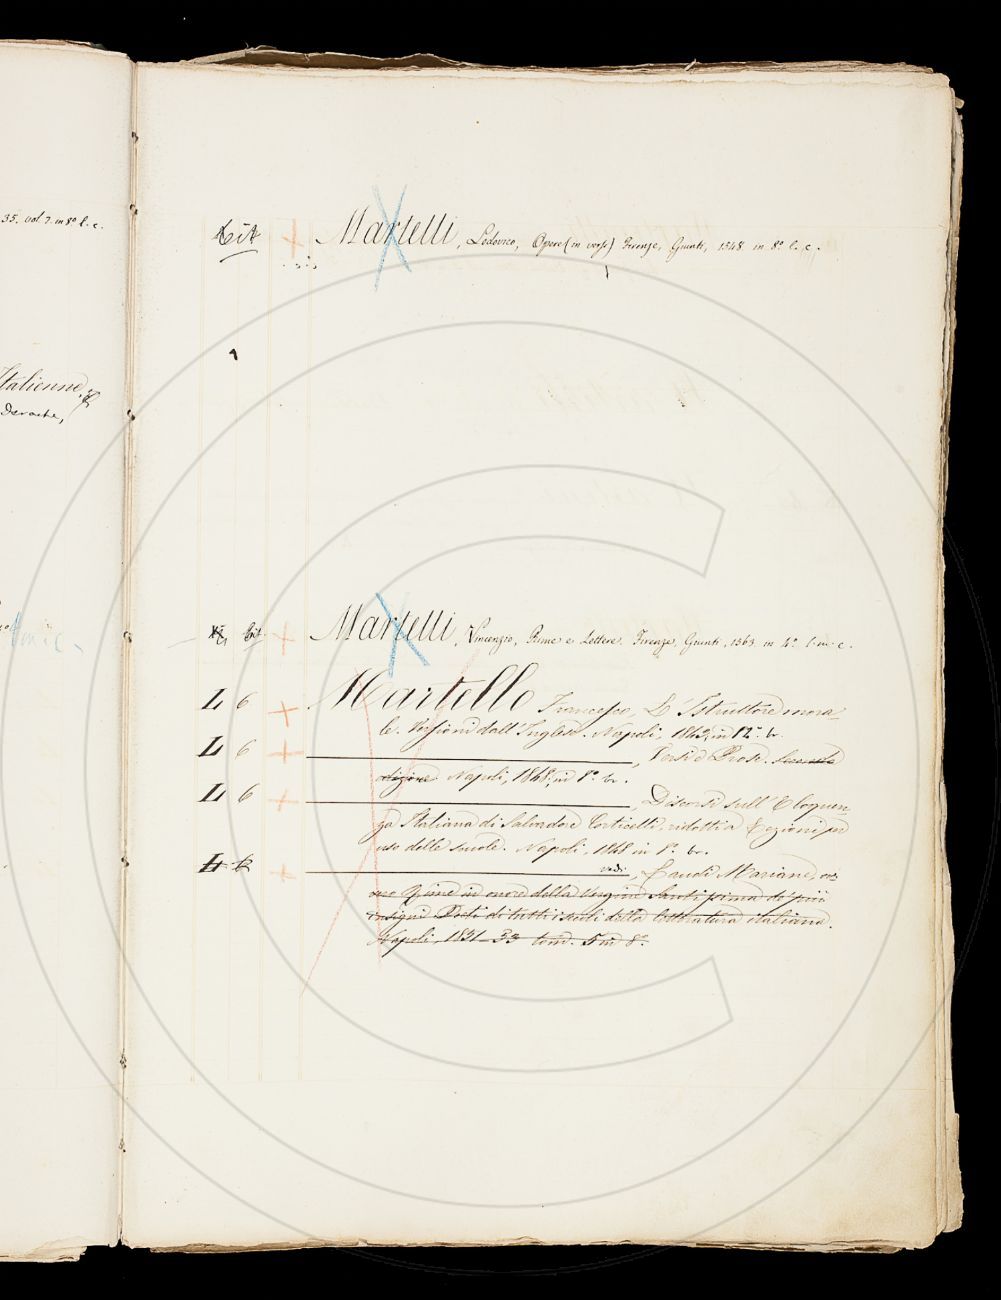 35. vol. 7. in 8º l. c.
Italienne,
Bit Martelli, Lodovico, Opere (in versi) Firenze, Giunti, 1548 in 8º. l. c.
Bit. Martelli, Vincenzio, Rime e Lettere. Firenze, Giunti, 1563. in 4º. l. m. c.
L 6 Martello Francesco, L'Istruttore mora-
le. Versioni dall'Inglese. Napoli, 1843, in 12º. br.
L 6 , Versi e Prose. Seconda
edizione. Napoli, 1848, in 8º. br.
L 6 , Discorsi sull'Eloquen-
za Italiana di Salvadore Corticelli, ridotti a Lezioni per
uso delle scuole. Napoli, 1848 in 8º. br.
vedi, Laudi Mariane, ov-
vero Rime in onore della Vergine Santissima de' più
insigni Poeti di tutti i secoli della letteratura italiana.
Napoli, 1851-53 tom. 5 in 8º.